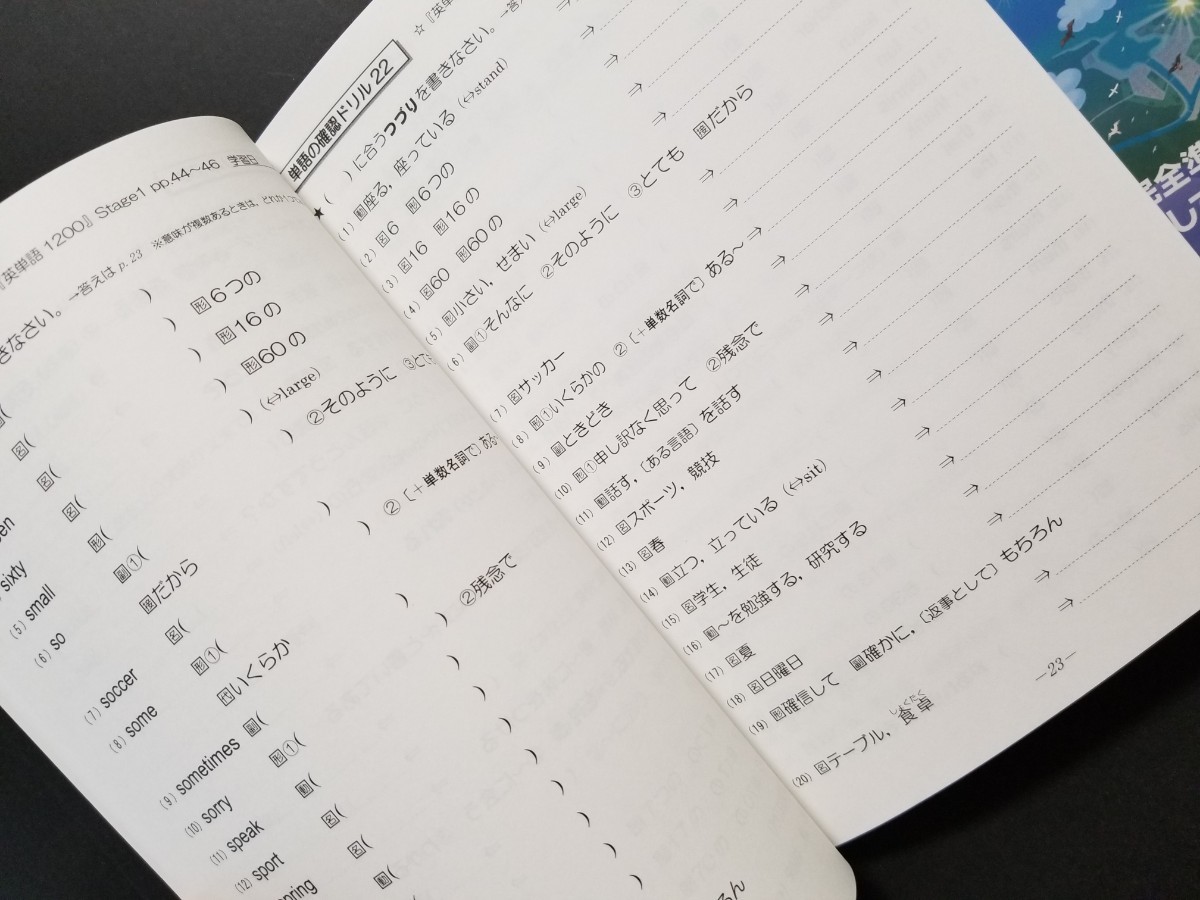 『英単語 1200』 Stage1 pp.44～46 学習日
きなさい。→答えは p.23 ※意味が複数あるときは、
) 形6つの
) 形16の
名( ) 形60の
名( ) (⇔large)
名( ) ②そのように
形( )
sixty
(5) small 副①( ) ②〔＋単数名詞で〕ある
(6) so 接だから
(7) soccer 名( )
(8) some 形①( ) ②残念で
代いくらか
(9) sometimes 副( )
(10) sorry 形①( )
(11) speak 動( )
(12) sport 名( )
名( )
動(
単語の確認ドリル 22
☆『英単
★( )に合うつづりを書きなさい。→答え
(1) 動座る，座っている (⇔stand) ⇒
(2) 名6 形6つの ⇒
(3) 名16 形16の ⇒
(4) 名60 形60の ⇒
(5) 形小さい，せまい (⇔large) ⇒
(6) 副①そんなに ②そのように ③とても 接だから ⇒
(7) 名サッカー ⇒
(8) 形①いくらかの ②〔＋単数名詞で〕ある～ ⇒
(9) 副ときどき ⇒
(10) 形①申し訳なく思って ②残念で ⇒
(11) 動話す，〔ある言語〕を話す ⇒
(12) 名スポーツ，競技 ⇒
(13) 名春 ⇒
(14) 動立つ，立っている (⇔sit) ⇒
(15) 名学生，生徒 ⇒
(16) 動～を勉強する，研究する ⇒
(17) 名夏 ⇒
(18) 名日曜日 ⇒
(19) 形確信して 副確かに，〔返事として〕もちろん ⇒
(20) 名テーブル，食卓 ⇒
しょくたく
－23－
完全準